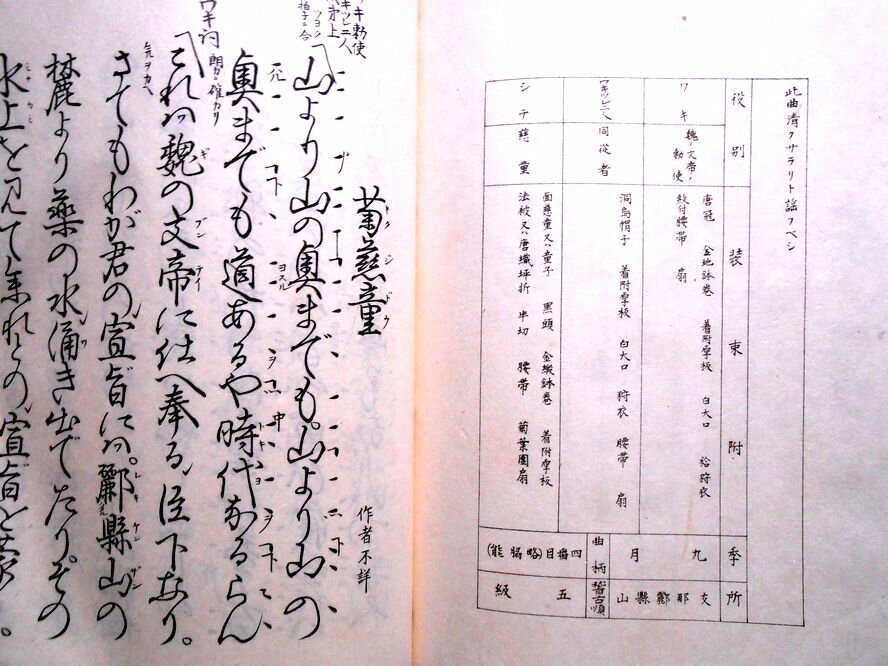 此曲清クサラリト謡フベシ
役別 装束附 季 所
ワキ 魏ノ文帝ノ勅使
唐冠 金地鉢巻 着附厚板 白大口 袷狩衣
紋付腰帯 扇
ワキツレ二人 同従者
洞烏帽子 着附厚板 白大口 狩衣 腰帯 扇
シテ 慈童
面慈童又ハ童子 黒頭 金緞鉢巻 着附厚板
法被又ハ唐織坪折 半切 腰帯 菊葉団扇
九月
支那酈縣山
曲柄 四番目(略脇能)
稽古順 五級
菊慈童
キクジドウ
作者不詳
ワキ勅使
ワキツレ二人
次第上
ツヨク
拍子ニ合
山より山の奥までも。山より山の
奥までも道あるや時代なるらん
ワキ詞
朗カニ確カリ
これハ魏の文帝に仕へ奉る臣下なり。
気ヲカヘ
さてもわが君の宣旨にハ。酈縣山の
麓より薬の水涌き出でたり。その
水上を見て参れとの宣旨を